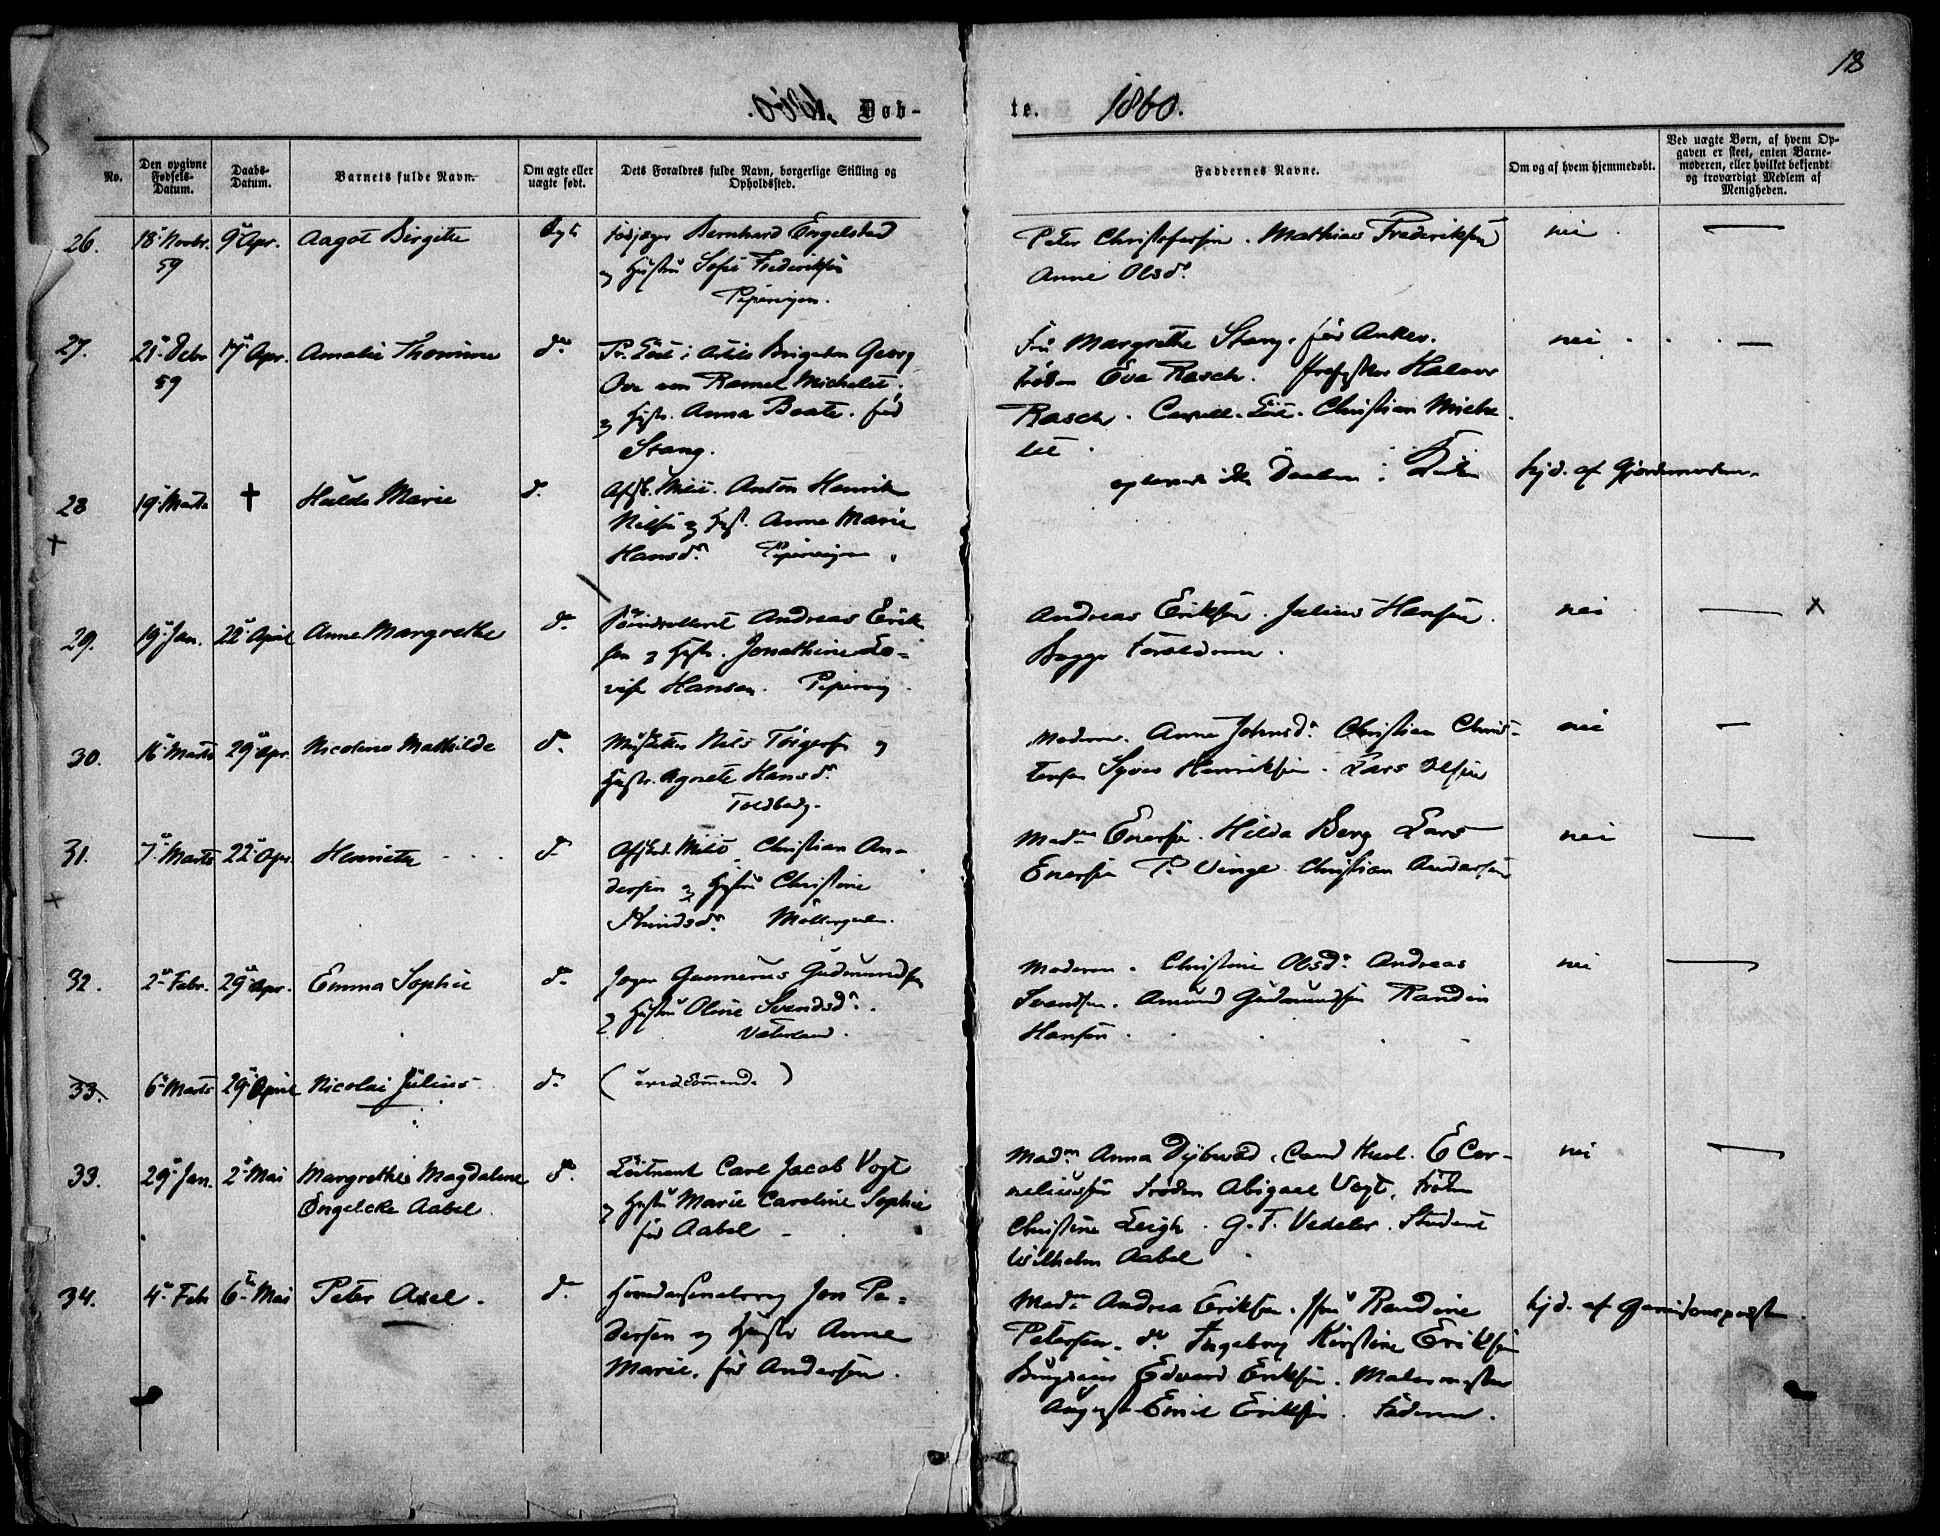 18
Døb-
te. 1860.
No.
Den opgivne Fødsels-Datum.
Daabs-Datum.
Barnets fulde Navn.
Om ægte eller uægte født.
Dets Forældres fulde Navn, borgerlige Stilling og Opholdssted.
Faddernes Navne.
Om og af hvem hjemmedøbt.
Ved uægte Børn, af hvem Op-
gaven er skeet, enten Barne-
moderen, eller hvilket bekjendt
og troværdigt Medlem af
Menigheden.
26. 18 Novbr. 9 Apr. Aagot Birgitte Bernhard Engelstad
59 og Hustru Sofie Frederiksen
Pipervigen.
Peter Christofersen. Mathias Frederiksen nei
Anne Olsd.
27. 21 Debr 17 Apr. Amalie Thomine d. Georg
59 Ove von Ramel Michelet
og Hustr. Anna Beate. fød
Stang.
Fru Margrethe Stang, fød Anker. nei
Frøken Eva Rasch. Halvor
Rasch. Christian Miche
let.
28 19 Marts † Hulda Marie d. Anton Henrik
Nilsen og Hust. Anne Marie
Hansd. Pipervigen
ikke Daaben i Kirken hjd. af Gjordemoderen
29. 19 Jan. 22 April Anne Margrethe d. Andreas Erik
sen og Hustr. Jonathine Lo-
vise Hansen. Pipervig.
Andreas Eriksen. Julius Hansen. nei x
Begge Forældrene.
30. 16 Marts 29 Apr. Nicoline Mathilde d. Nils Torgersen og
Hustr. Agnete Hansd.
Toldbodg.
Moderen. Anne Johnsd. Christian Chris- nei
tensen Syver Henriksen. Lars Olsen
31. 7 Marts 22 Apr. Henriette d. Christian An-
dersen og Hustru Christine
Knudsd. Møllergaden.
Mad. Enersen. Hilda Berg Lars nei
Enersen P. Vinge Christian Andersen
32. 2 Febr. 29 Apr. Emma Sophie d. Jæger Gunnerus Gudmundsen
og Hustru Oline Svendsd.
Vaterland.
Moderen. Christine Olsd. Andreas nei
Svendsen. Amund Gudmundsen Randin
Hansen
33. 6 Marts 29 April Nicolai Julius d. ( )
33. 29 Jan. 2 Mai Margrethe Magdalene d. Løitnant Carl Jacob Vogt
Engelcke Aabel. og Hustru Marie Caroline Sophie
fød Aabel
Mad. Anna Dybwad, Cand E Cor- nei
neliussen Frøken Abigael Vogt, Frøken
Christine Leigh. G. F. Vedeler. Student
Wilhelm Aabel
34. 4 Feb 6 Mai Peter Axel. d. Jon Pe-
dersen og Hustr Anne
Marie, fød Andersen.
Mad. Andrea Eriksen. Randine hjd. af Garnisonspræsten.
Petersen. d. Ingeborg Kirstine Eriksen
Edvard Eriksen. Malermester
August Emil Eriksen. Faderen.